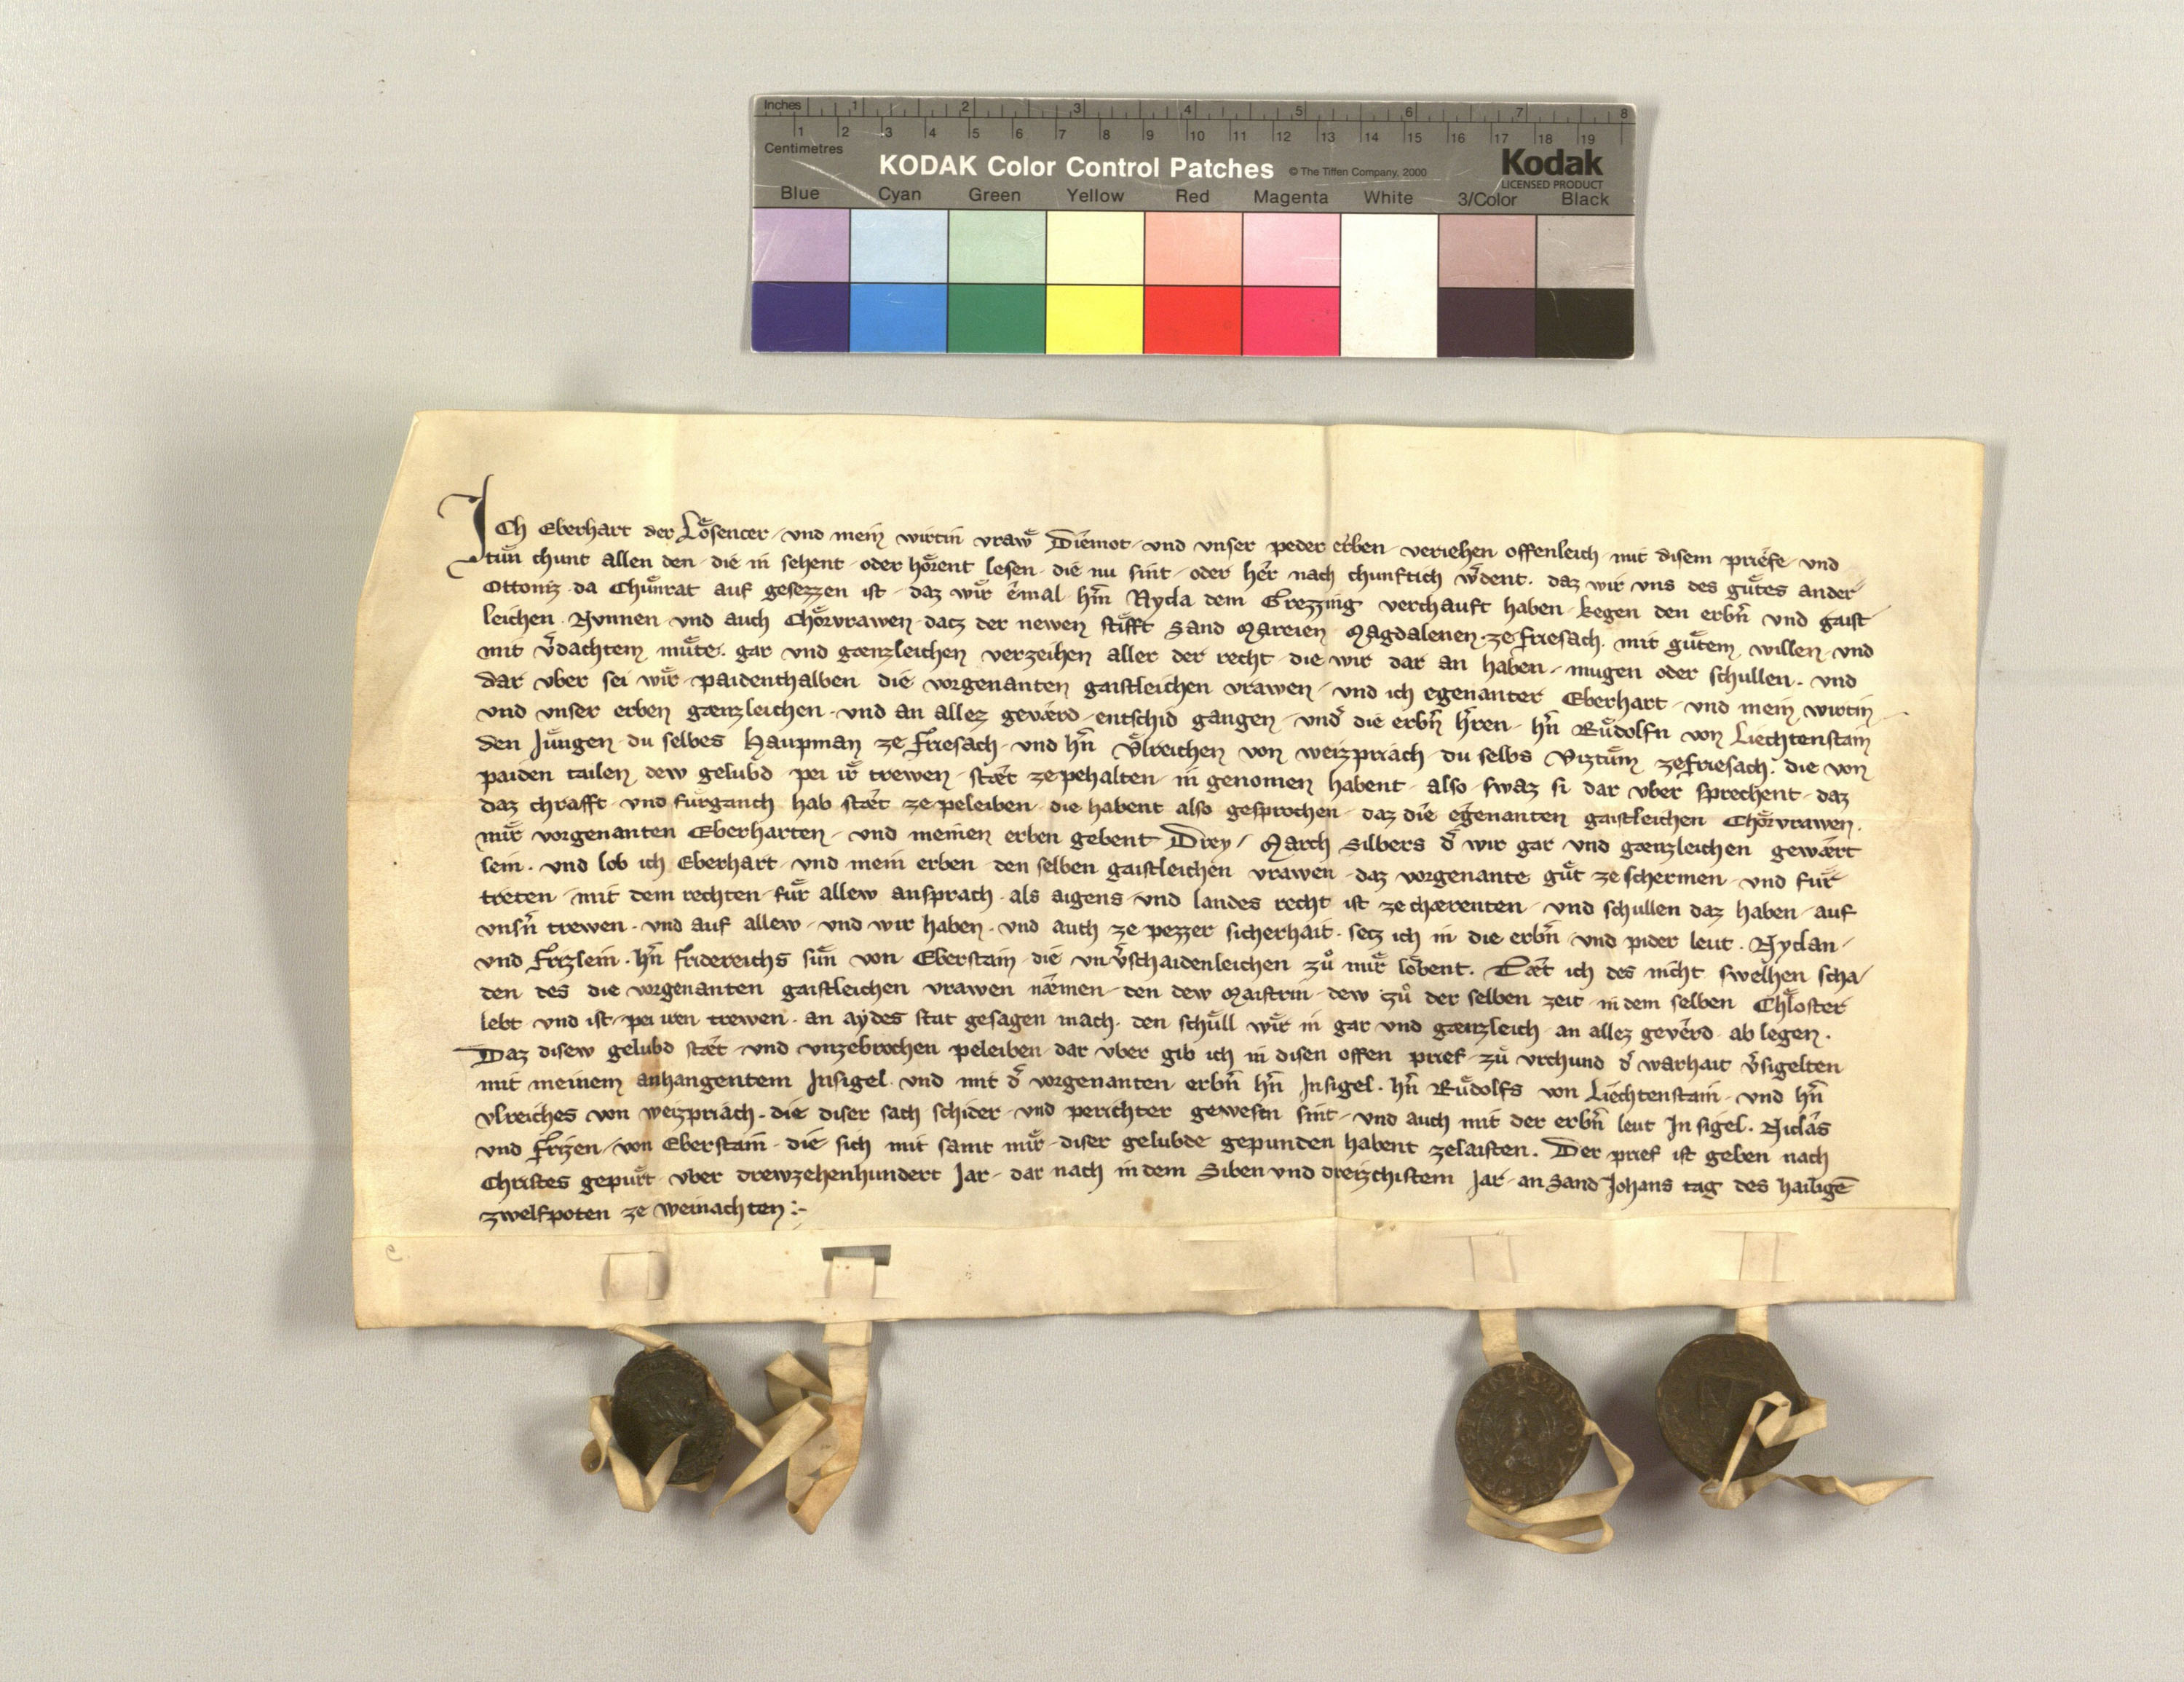 Inches 1 2 3 4 5 6 7 8
1 2 3 4 5 6 7 8 9 10 11 12 13 14 15 16 17 18 19
Centimetres
KODAK Color Control Patches © The Tiffen Company, 2000 Kodak
LICENSED PRODUCT
Blue Cyan Green Yellow Red Magenta White 3/Color Black
ICh Eberhart der Loͤsenter und mein wirtin vraw Diemot und unser peder erben veriehen offenleich mit disem priefe und
tuͤn chunt allen den die in sehent oder hoͤrent lesen die nu sint oder her nach chunftich wͤdent. daz wir uns des guͤtes ander
Ottoniz da Chuͤnrat auf gesezzen ist daz wir emal hm̄ Nycla dem Grezzing verchauft haben kegen den erbn̄ und gaist
leichen Nunnen und auch Choͤrvrawen datz der newen stifft Sand Mareien Magdalenen ze friesach. mit guͤtem willen und
mit v̄dachtem muͤte. gar und gænzleichen verzeihen aller der recht die wir dar an haben mugen oder schullen. und
dar vber sei wir paidenthalben die vorgenanten gaistleichen vrawen und ich egenanter Eberhart und mein wirtin
und unser erben gænzleichen und an allez geværd entschid gangen und die erbn̄ hren hn̄ Ruͤdolfn von Liechtenstain
den Jungen du selbes haupman ze friesach und hn̄ Vlreichen von weizpriach du selbs Viztuͤm ze friesach. die von
paiden tailen dew gelubd pei ir trewen stæt ze pehalten in genomen habent also swaz si dar vber sprechent daz
daz chrafft und furganch hab stæt ze peleiben die habent also gesprochen daz die egenanten gaistleichen Choͤrvrawen.
mir vorgenanten Eberharten und meinen erben gebent Drey March silbers d̄ wir gar und gænzleichen gewært
sein. und lob ich Eberhart und mein erben den selben gaistleichen vrawen daz vorgenante guͤt ze schermen und fur
treten mit dem rechten fur allew ansprach als aigens und landes recht ist ze chærenten und schullen daz haben auf
unsn̄ trewen. und auf allew und wir haben. und auch ze pezzer sicherhait. setz ich in die erbn̄ und pider leut. Nyclan
und Frizlein. hn̄ fridereichs suͤn von Eberstain die unv̄schaidenleichen zuͦ mir lobent. Tæt ich des nicht swelhen scha
den des die vorgenanten gaistleichen vrawen næmen den dew Maistrin dew zuͦ der selben zeit in dem selben Chloster
lebt und ist pei iren trewen. an aydes stat gesagen mach. den schull wir in gar und gænzleich an allez geverd ab legen.
Daz disew gelubd stæt und unzebrochen peleiben dar vber gib ich in disen offen prief zuͤ vrchund d̄ warhait v̄sigelten
mit meinem anhangentem Insigel und mit d̄ vorgenanten erbn̄ hn̄ Insigel. hn̄ Ruͤdolfs von Liechtenstain und hn̄
Vlreiches von weizpriach. die diser sach schider und perichter gewesen sint und auch mit der erbn̄ leut Insigel. Niclas
und Frizen von Eberstain die sich mit samt mir diser gelubde gepunden habent ze laisten. Der prief ist geben nach
Christes gepurt vber drewzehenhundert Jar dar nach in dem Siben und dreizchistem Jar an Sand Johans tag des hailigē
zwelfpoten ze weinachten :-